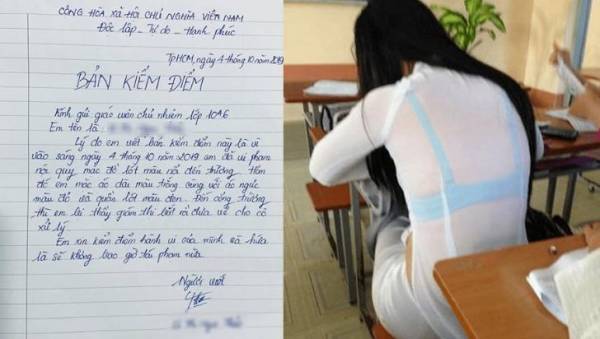 CỘNG HÒA XÃ HỘI CHỦ NGHĨA VIỆT NAM
Độc lập - Tự do - Hạnh phúc
TpHCM, ngày 4 tháng 10 năm 2019
BẢN KIỂM ĐIỂM
Kính gửi giáo viên chủ nhiệm lớp 10A6
Em tên là:
Lý do em viết bản kiểm điểm này là vì
vào sáng ngày 4 tháng 10 năm 2019 em đã vi phạm
nội quy mặc đồ lót màu nổi đến trường. Hôm
đó em mặc áo dài màu trắng cùng với áo ngực
màu đỏ và quần lót màu đen. Đến cổng trường
thì em bị thầy giám thị bắt rồi đưa về cho cô
xử lý
Em xin kiểm điểm hành vi của mình và hứa
là sẽ không bao giờ tái phạm nữa
Người viết